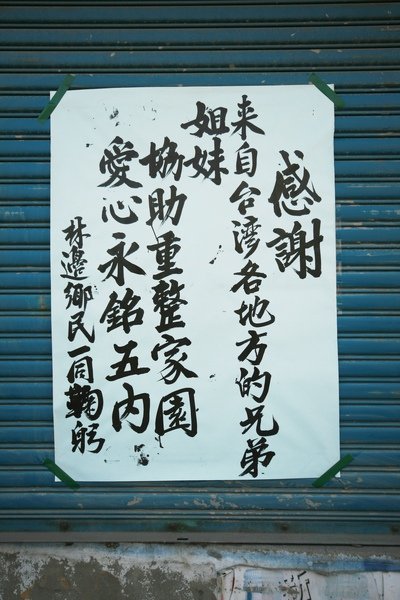 感謝
来自台湾各地方的兄弟
姐妹
協助重整家園
愛心永銘五內
林邊鄉民一同鞠躬